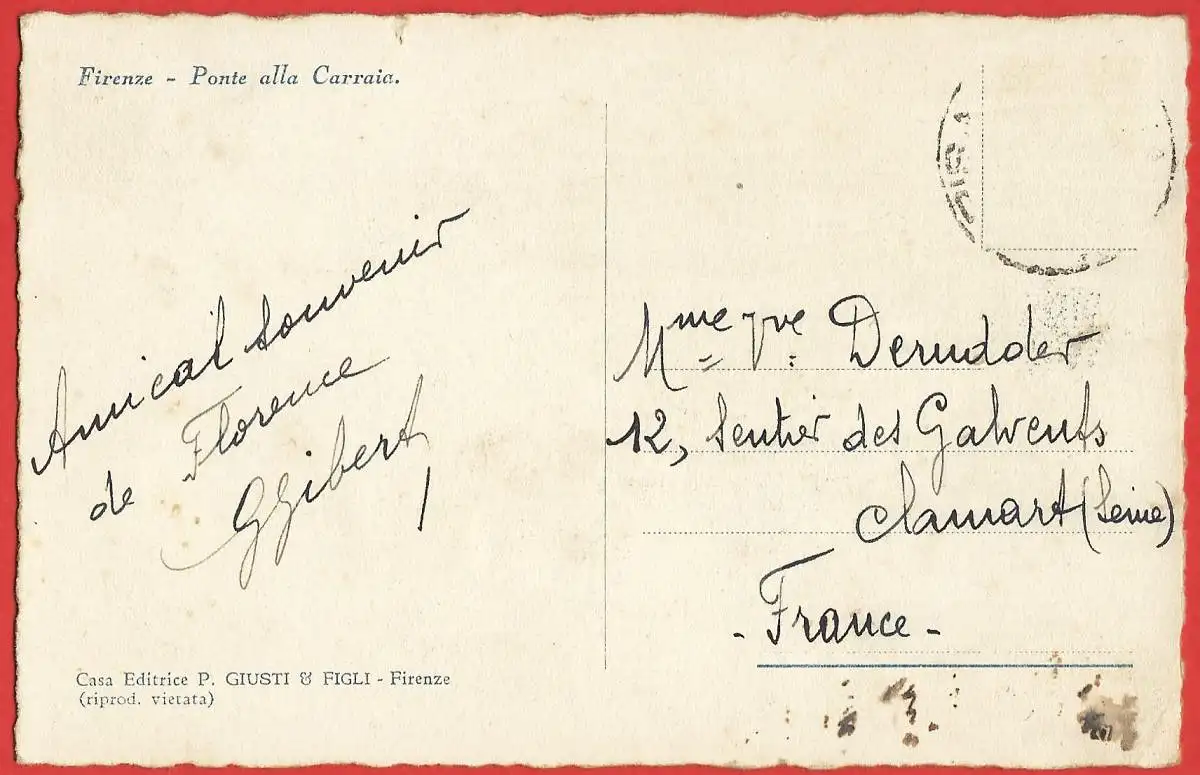 Firenze - Ponte alla Carraia.
Amical souvenir
de Florence
GGibert
Mme Vve Derudder
12, Sentier des Galvents
Clamart (Seine)
- France -
Casa Editrice P. GIUSTI & FIGLI - Firenze
(riprod. vietata)